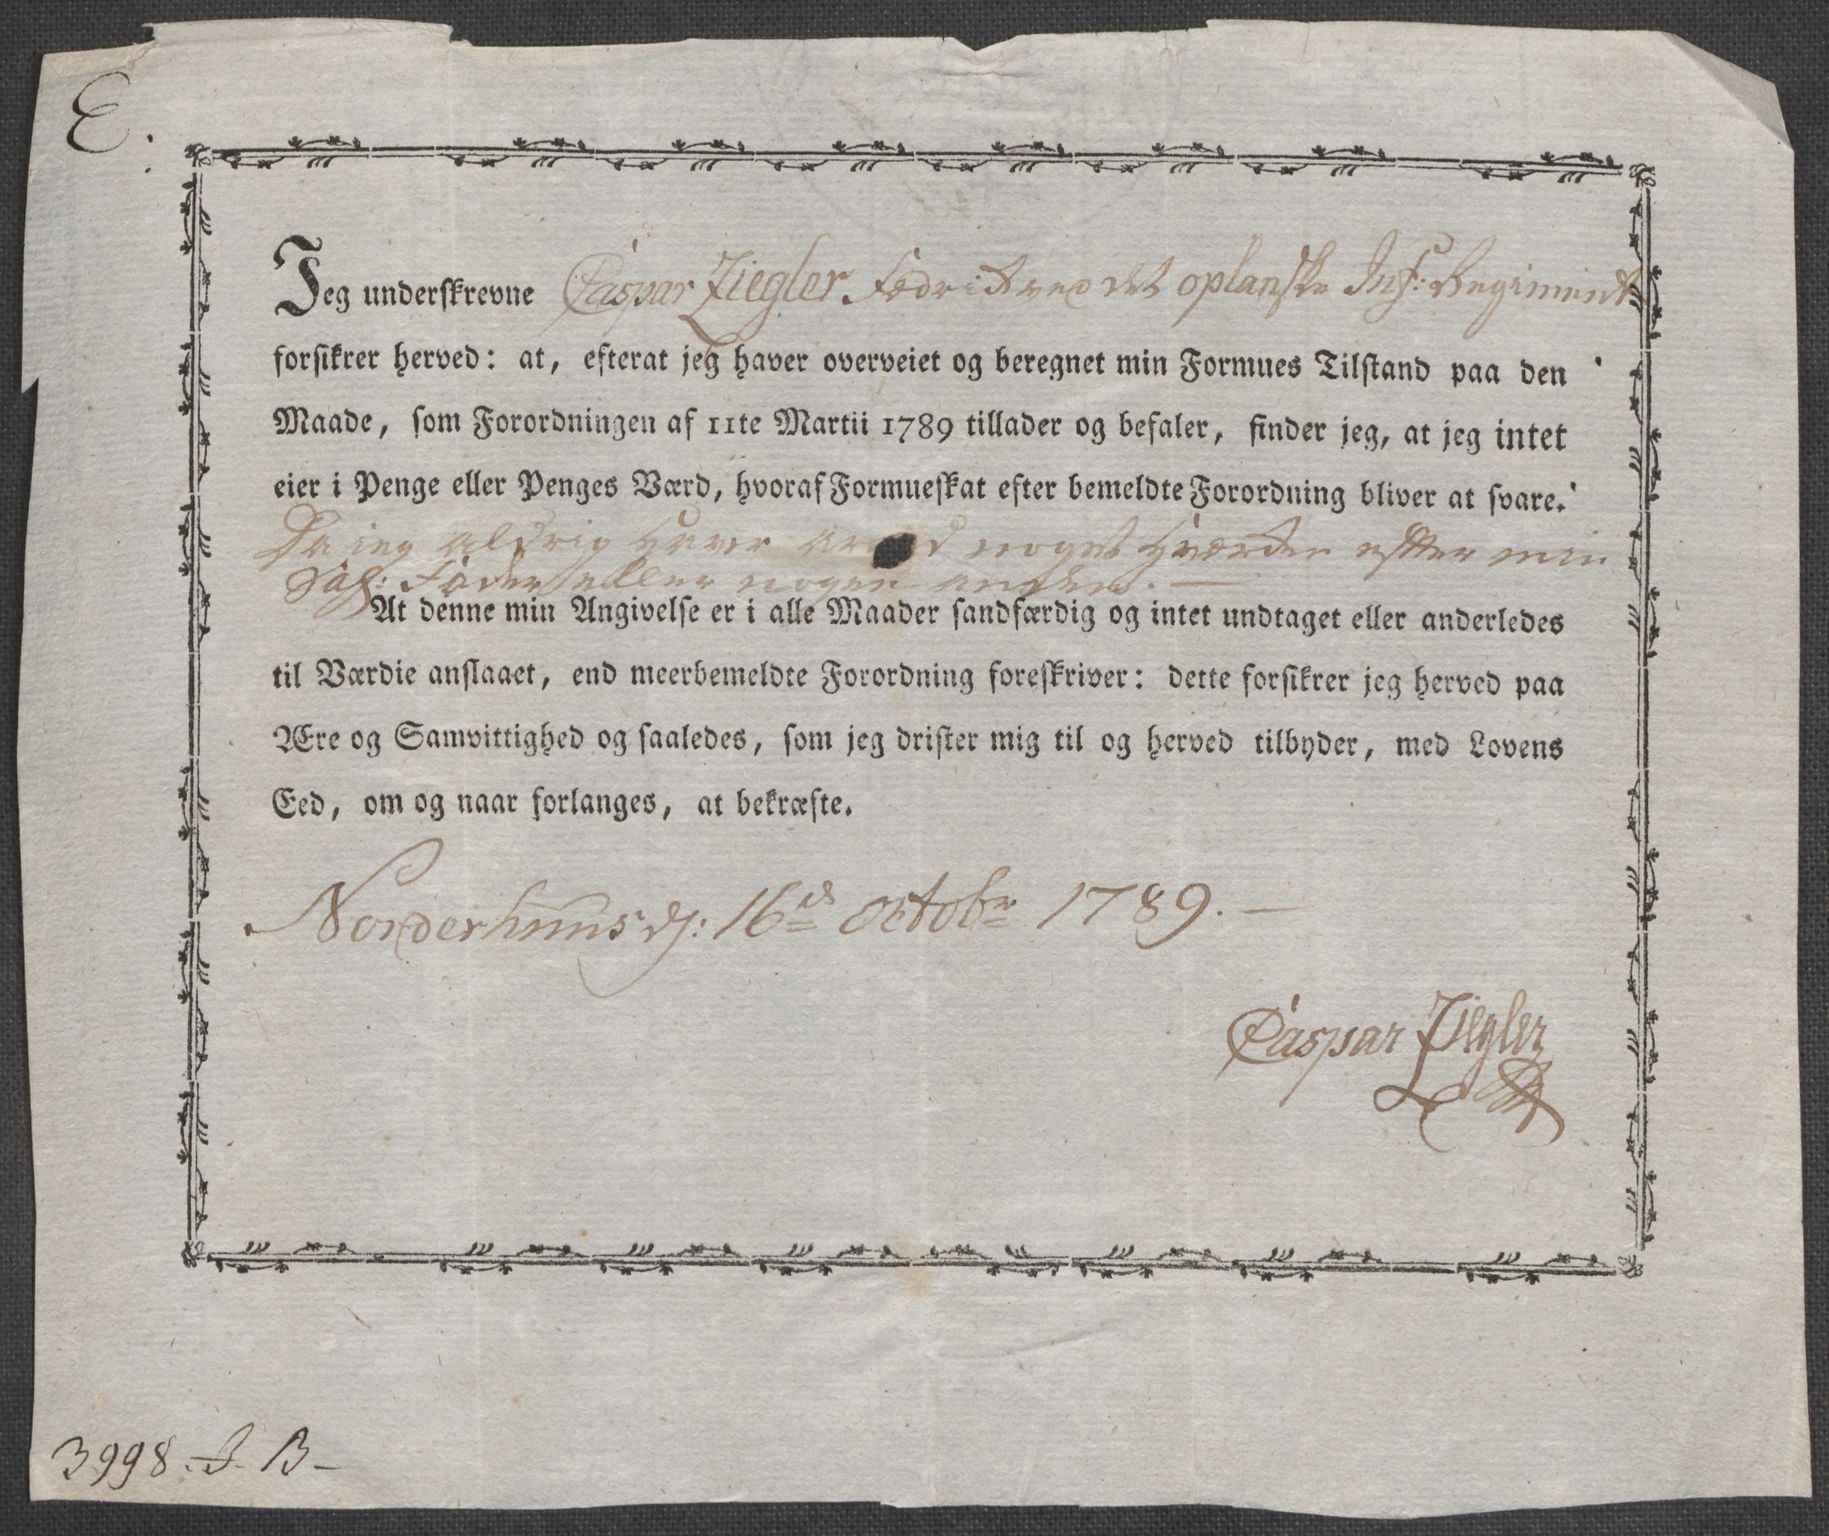 E.
Jeg underskrevne Caspar Ziegler ved det oplanske Inf: Regiment
forsikrer herved: at, efterat jeg haver overveiet og beregnet min Formues Tilstand paa den
Maade, som Forordningen af 11te Martii 1789 tillader og befaler, finder jeg, at jeg intet
eier i Penge eller Penges Værd, hvoraf Formueskat efter bemeldte Forordning bliver at svare.
Da ieg aldrig haver noget hverken efter min
Sal: Fader eller nogen anden. —
At denne min Angivelse er i alle Maader sandfærdig og intet undtaget eller anderledes
til Værdie anslaaet, end meerbemeldte Forordning foreskriver: dette forsikrer jeg herved paa
Ære og Samvittighed og saaledes, som jeg drister mig til og herved tilbyder, med Lovens
Eed, om og naar forlanges, at bekræfte.
Norderhuus d: 16de octobr 1789. —
Caspar Ziegler
3998. J. B —